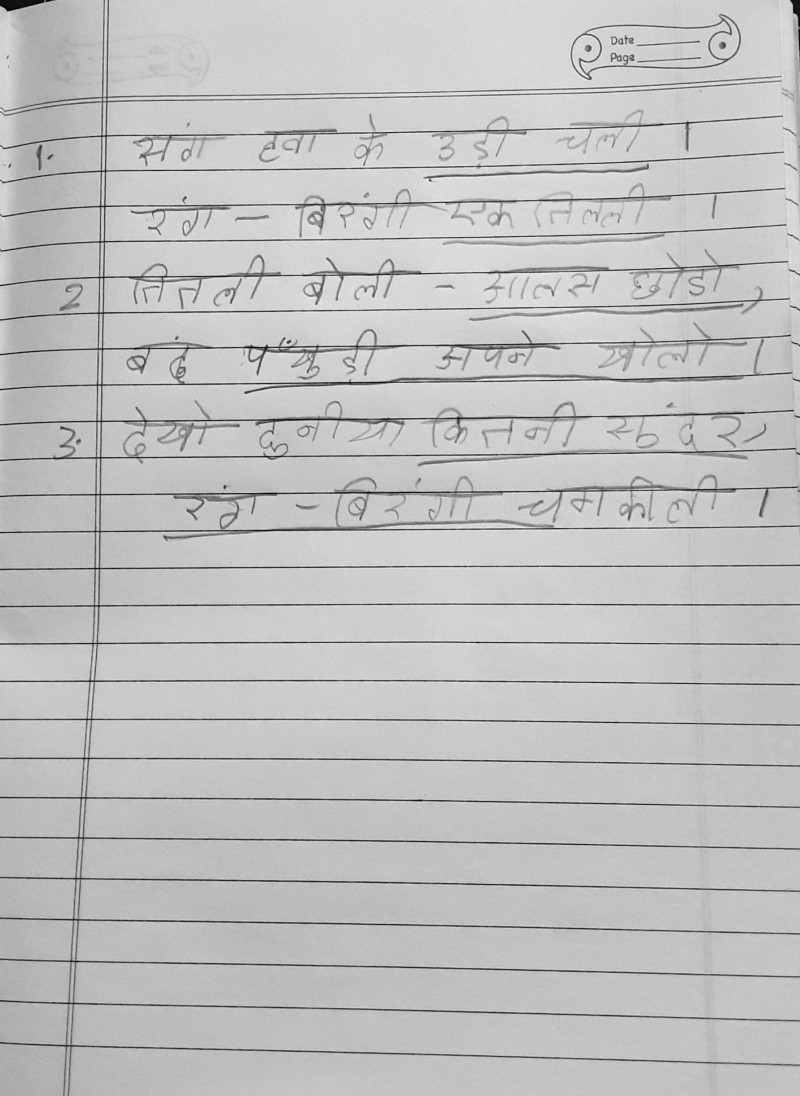 Date
Page
1. संग हवा के उड़ी चली ।
रंग - बिरंगी एक तितली ।
2 तितली बोली - आलस छोडो,
बंद पँखुड़ी अपने खोलो ।
3. देखो दुनीया कितनी सुंदर,
रंग - बिरंगी चमकीली ।